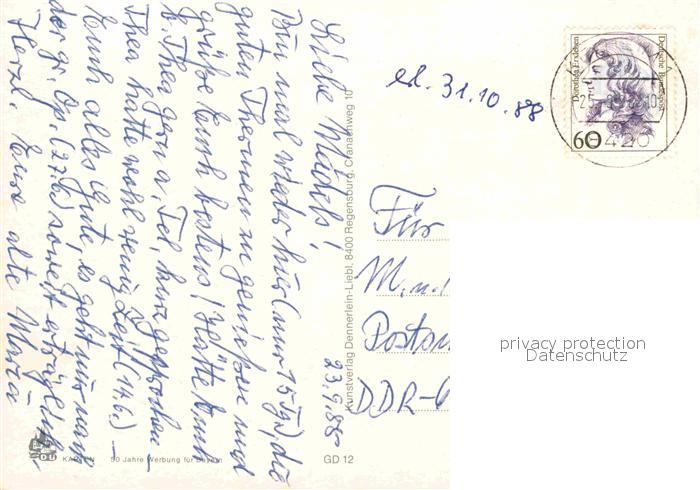 Liebe Mädels!
Bin mal wieder hier (nur 15 Tg.), die
guten Thermen zu genießen und
grüße Euch bestens! Hätte auch
b. Thea gern a. Tel. kurz gesprochen
Thea hatte wohl wenig Zeit (14.6.) –
Euch alles Gute, es geht mir nach
der gr. Op. (27.6.) soweit erträglich.
Herzl. Eure alte Maria
23.9.88
ed. 31.10.88
Deutsche Bundespost
Dorothea Erxleben
60
Für
M. u.
Postan
DDR-
Kunstverlag Dennerlein-Liebl, 8400 Regensburg, Cranachweg 10
privacy protection
Datenschutz
KARTEN
50 Jahre Werbung für Bayern
GD 12